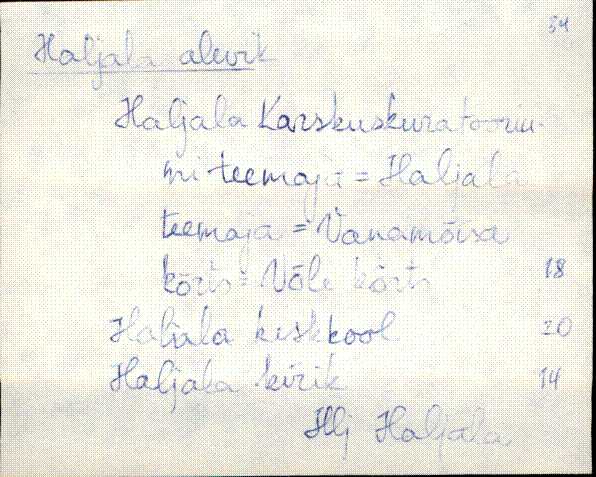 54
Haljala alevik
Haljala Karskuskuratooriu-
mi teemaja = Haljala
teemaja = Vanamõisa
kõrts = Võle kõrts 18
Haljala keskkool 20
Haljala kirik 14
Hlj Haljala